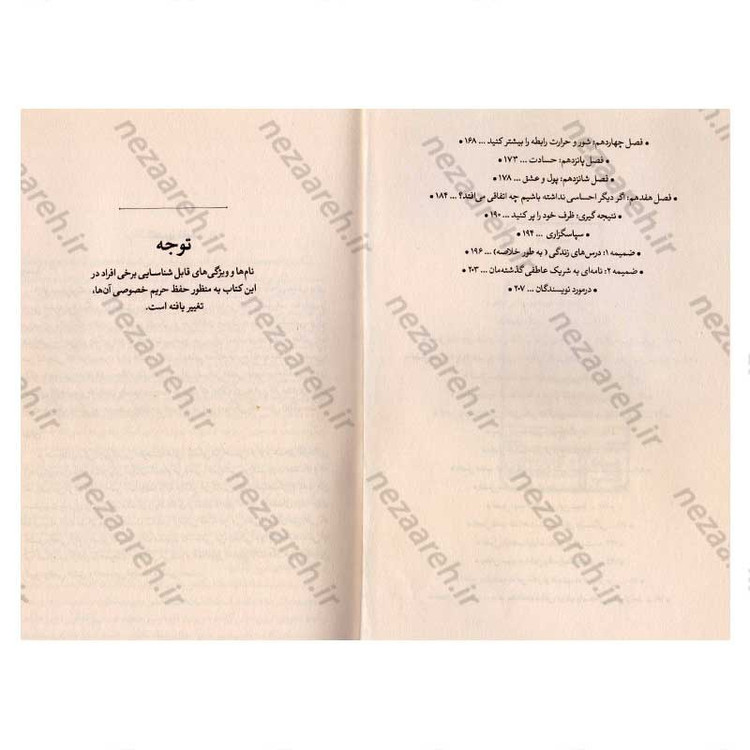 • فصل چهاردهم: شور و حرارت رابطه را بیشتر کنید ... ۱۶۸ •
• فصل پانزدهم: حسادت ... ۱۷۳ •
• فصل شانزدهم: پول و عشق ... ۱۷۸ •
• فصل هفدهم: اگر دیگر احساسی نداشته باشیم چه اتفاقی می‌افتد؟ ... ۱۸۴ •
• نتیجه گیری: ظرف خود را پر کنید ... ۱۹۰ •
• سپاسگزاری ... ۱۹۴ •
• ضمیمه ۱: درس‌های زندگی ( به طور خلاصه) ... ۱۹۶ •
• ضمیمه ۲: نامه‌ای به شریک عاطفی گذشته‌مان ... ۲۰۳ •
• درمورد نویسندگان ... ۲۰۷ •
توجه
نام‌ها و ویژگی‌های قابل شناسایی برخی افراد در
این کتاب به منظور حفظ حریم خصوصی آن‌ها،
تغییر یافته است.
nezaareh.ir